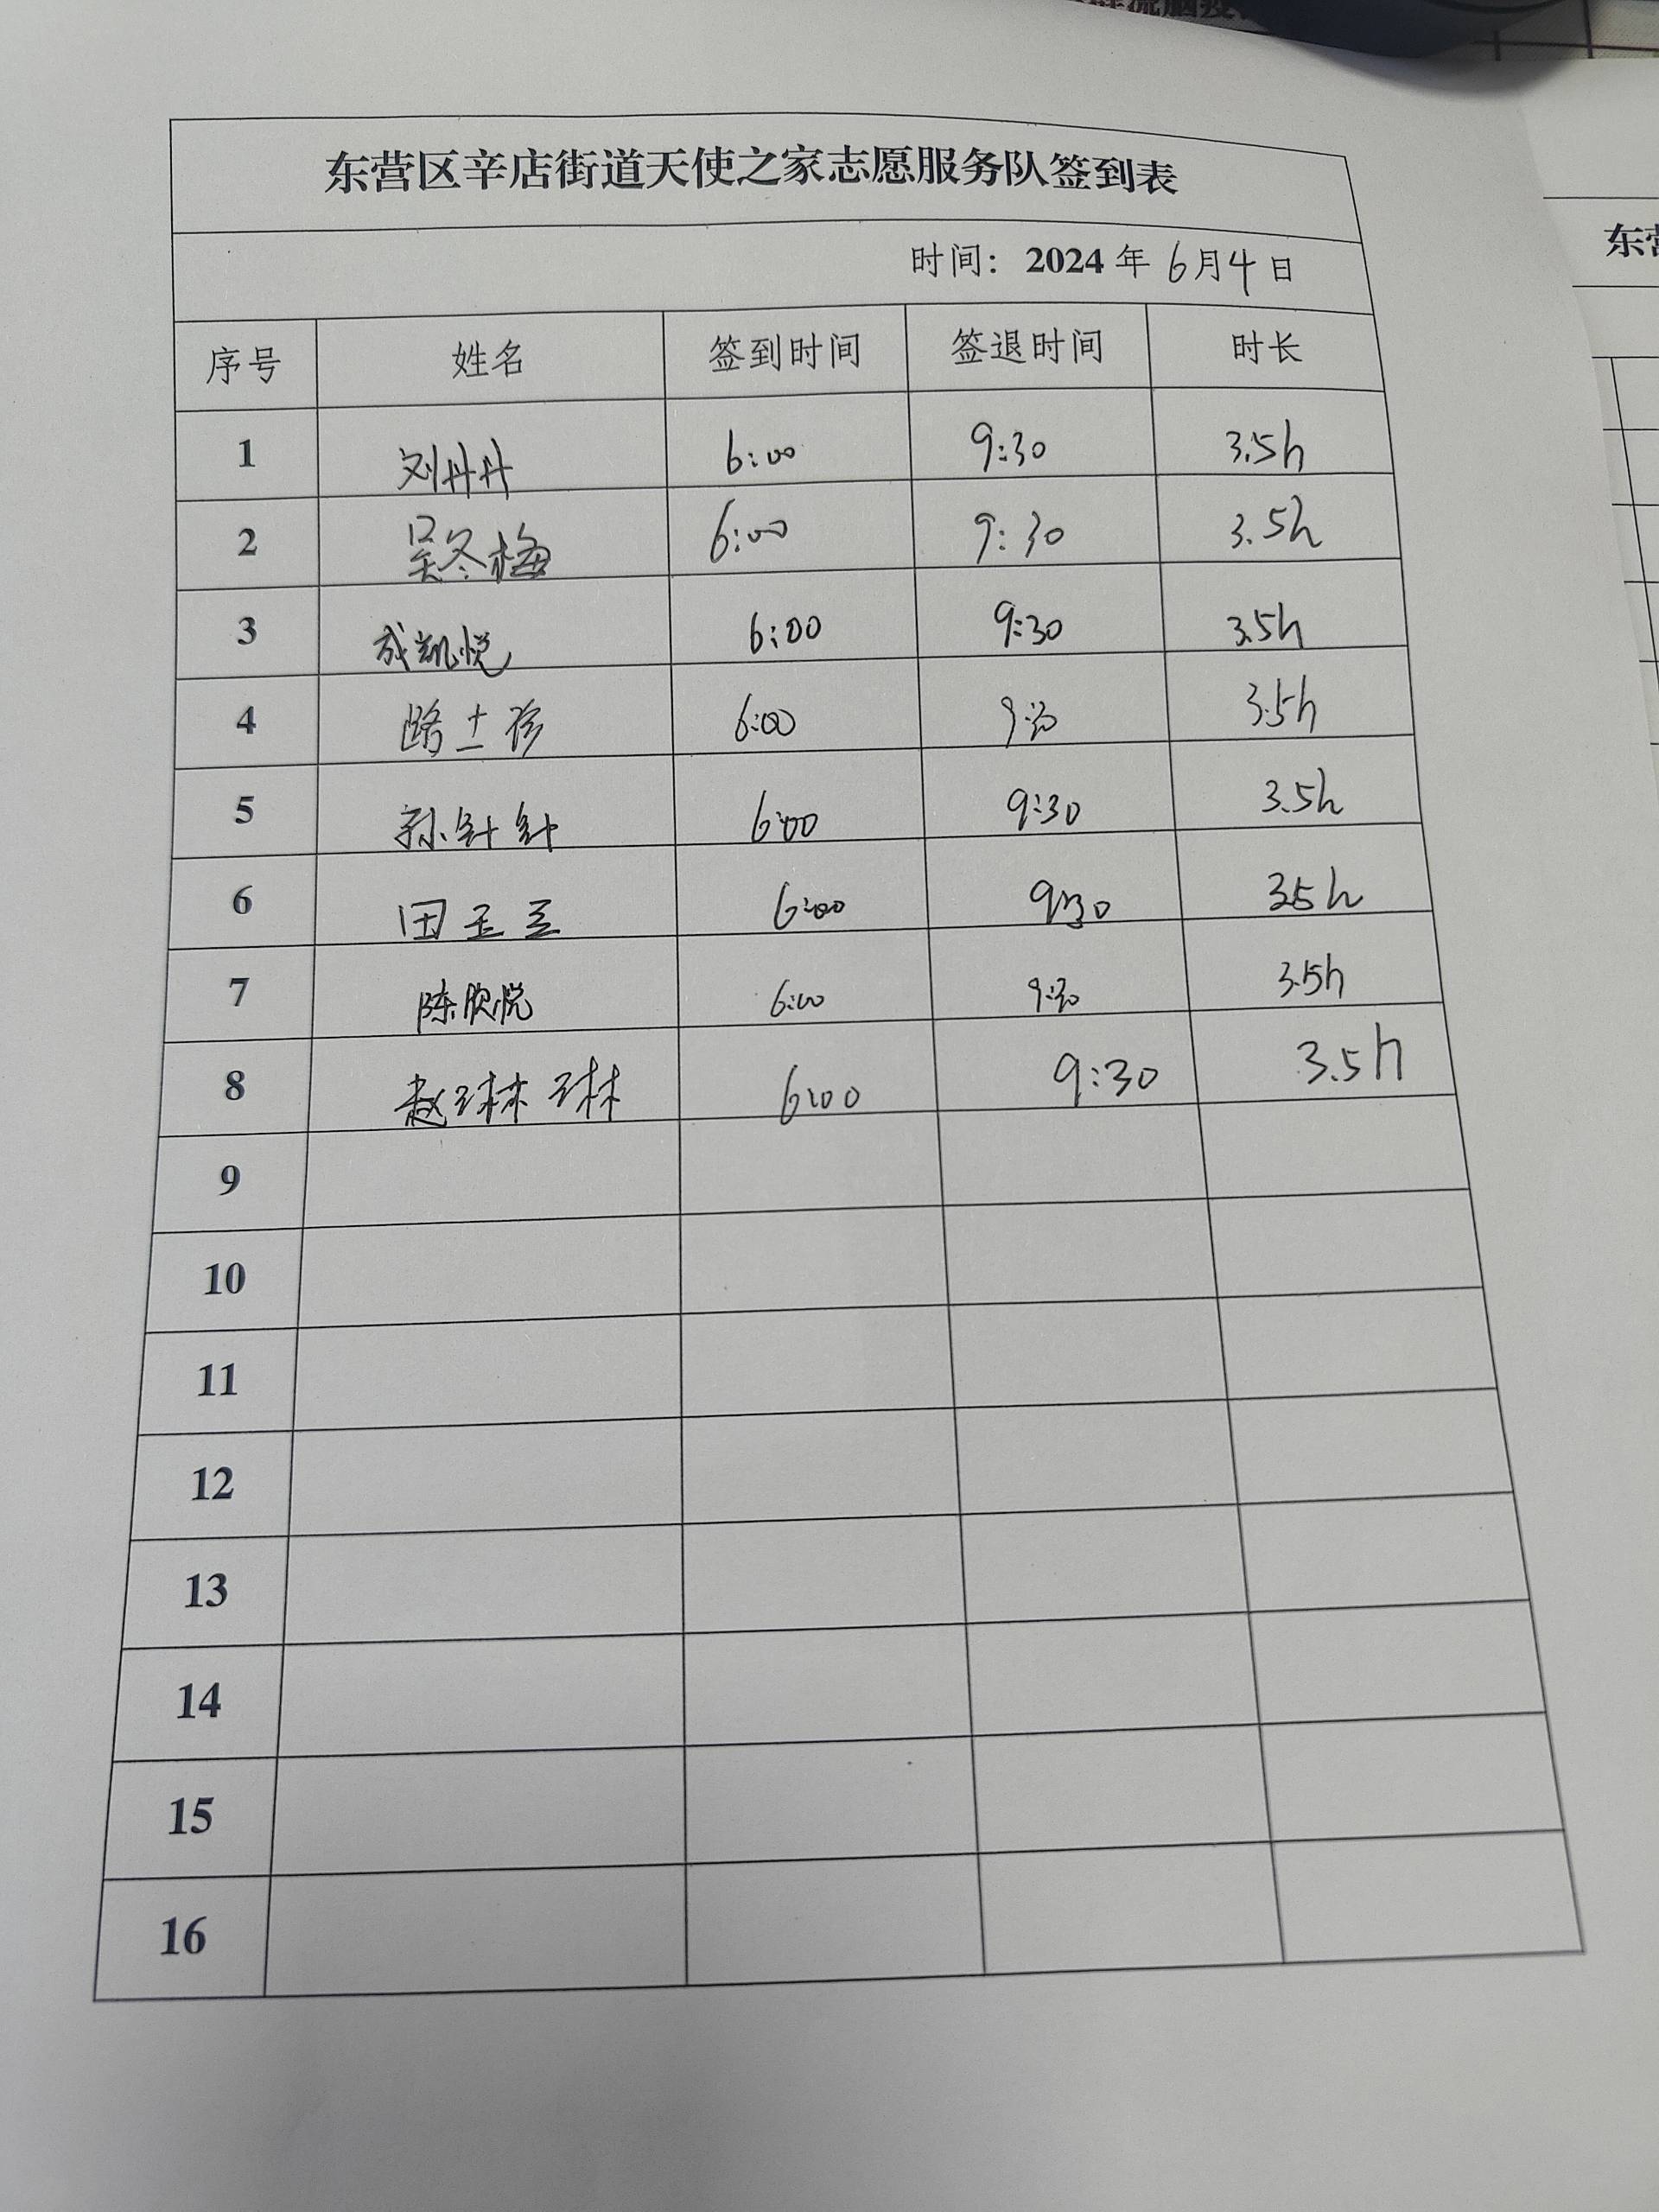 东营区辛店街道天使之家志愿服务队签到表
时间：2024年6月4日
序号 姓名 签到时间 签退时间 时长
1 刘丹丹 6:00 9:30 3.5h
2 吴冬梅 6:00 9:30 3.5h
3 成凯悦 6:00 9:30 3.5h
4 路士珍 6:00 9:30 3.5h
5 孙针针 6:00 9:30 3.5h
6 田玉 6:00 9:30 3.5h
7 陈欣悦 6:00 9:30 3.5h
8 赵琳琳 6:00 9:30 3.5h
9
10
11
12
13
14
15
16
东营